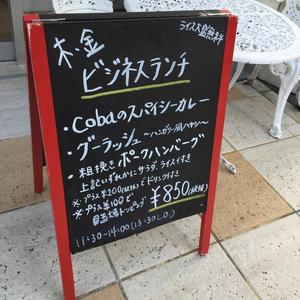 木、金
ライス大盛無料
ビジネスランチ
・Cobaのスパイシーカレー
・グーラッシュ 〜ハンガリー風ハヤシ〜
・粗挽きポークハンバーグ
上記いずれかにサラダ、ライス付き
※プラス¥200(税抜)でドリンク付き
※プラス¥100で
目玉焼トッピング
¥850(税抜)
11:30-14:00(13:30L.O.)